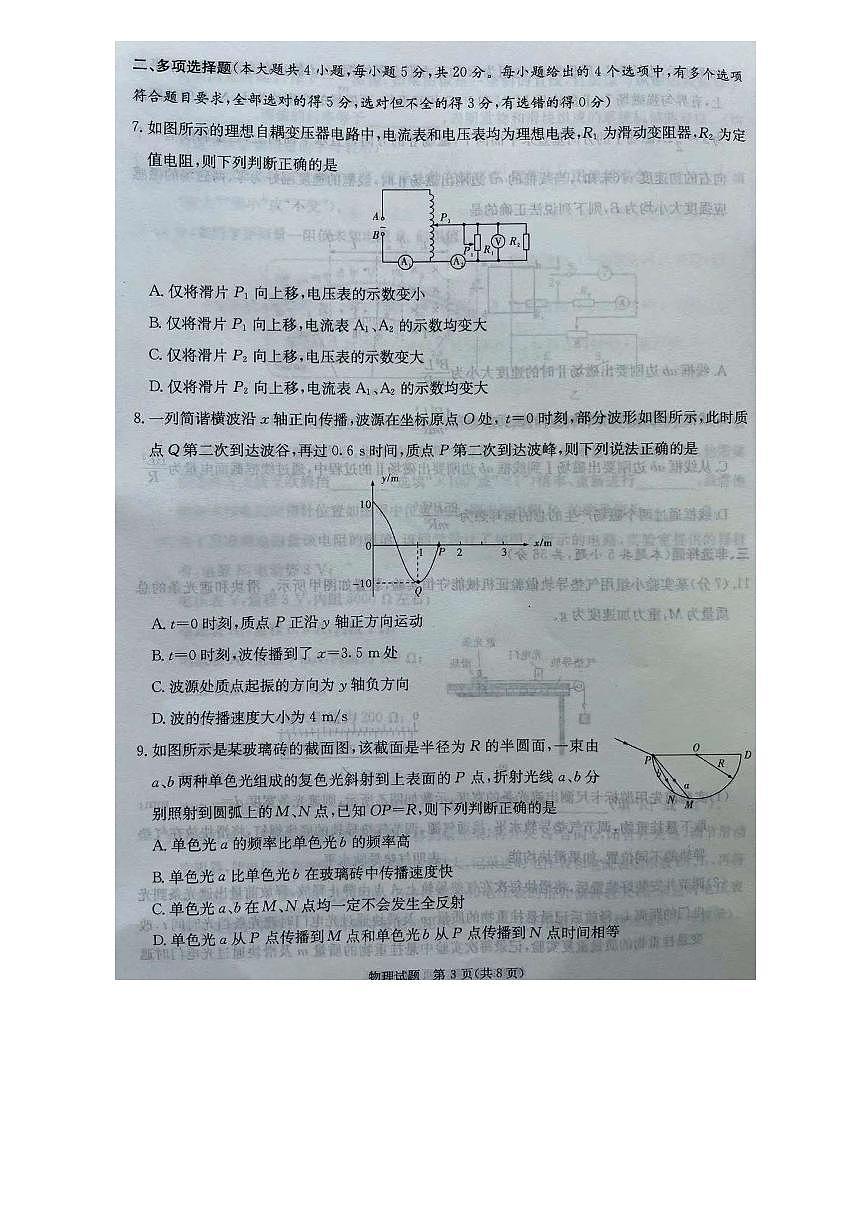 二、多项选择题(本大题共4小题,每小题5分,共20分。每小题给出的4个选项中,有多个选项
符合题目要求,全部选对的得5分,选对但不全的得3分,有选错的得0分)
7. 如图所示的理想自耦变压器电路中,电流表和电压表均为理想电表,R₁为滑动变阻器,R₂为定
值电阻,则下列判断正确的是
A
B
P₂
P₁
R₁
V
R₂
A₁
A₂
A. 仅将滑片P₁向上移,电压表的示数变小
B. 仅将滑片P₁向上移,电流表A₁、A₂的示数均变大
C. 仅将滑片P₂向上移,电压表的示数变大
D. 仅将滑片P₂向上移,电流表A₁、A₂的示数均变大
8. 一列简谐横波沿x轴正向传播,波源在坐标原点O处,t=0时刻,部分波形如图所示,此时质
点Q第二次到达波谷,再过0.6 s时间,质点P第二次到达波峰,则下列说法正确的是
y/m
10
0
1
P
2
3
x/m
-10
Q
A. t=0时刻,质点P正沿y轴正方向运动
B. t=0时刻,波传播到了x=3.5 m处
C. 波源处质点起振的方向为y轴负方向
D. 波的传播速度大小为4 m/s
9. 如图所示是某玻璃砖的截面图,该截面是半径为R的半圆面,一束由
a、b两种单色光组成的复色光斜射到上表面的P点,折射光线a、b分
别照射到圆弧上的M、N点,已知OP=R,则下列判断正确的是
P
O
D
R
b
a
N
M
A. 单色光a的频率比单色光b的频率高
B. 单色光a比单色光b在玻璃砖中传播速度快
C. 单色光a、b在M、N点均一定不会发生全反射
D. 单色光a从P点传播到M点和单色光b从P点传播到N点时间相等
物理试题 第3页(共8页)